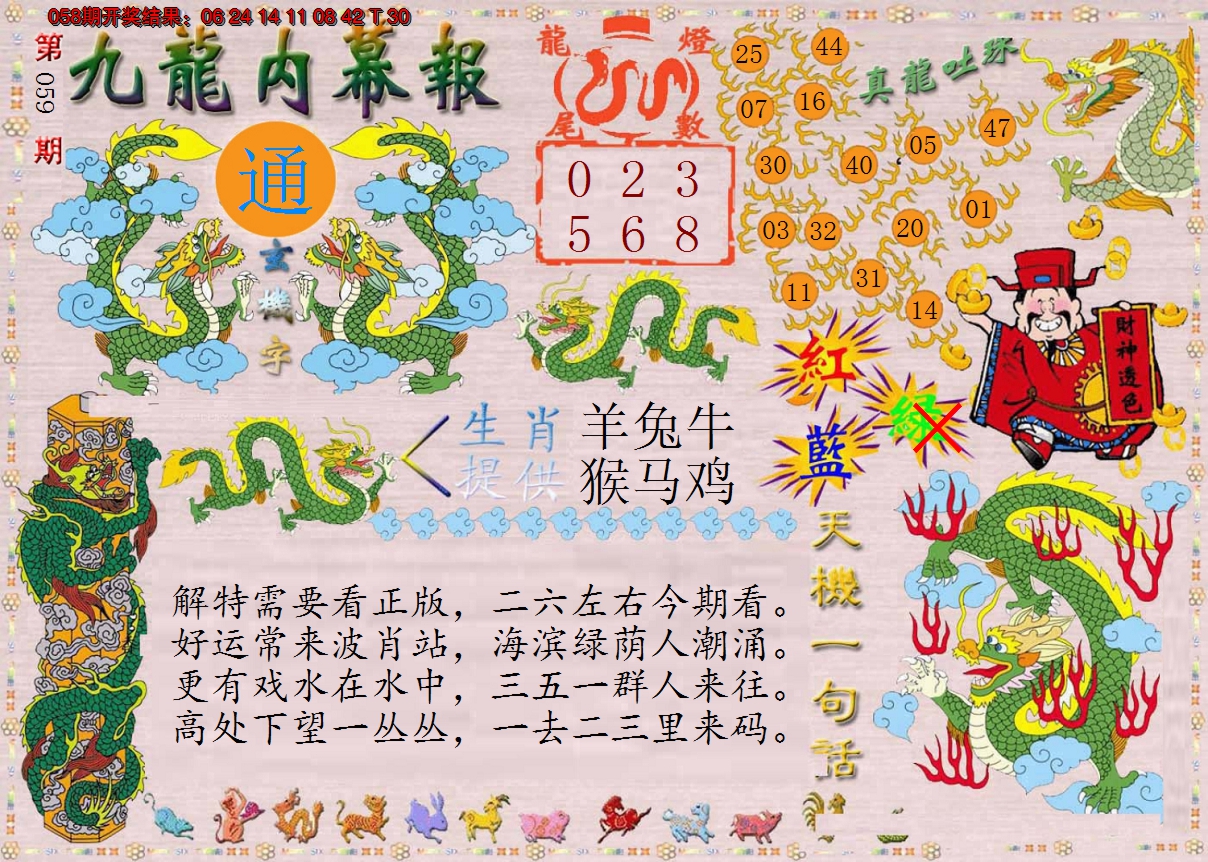 058期开奖结果：06 24 14 11 08 42 T 30
第059期
九龍内幕報
通
玄機字
龍燈尾數
0 2 3
5 6 8
真龍吐珠
25 44
07 16
30 40 05 47
03 32 20 01
11 31 14
財神透色
紅
綠
藍
生肖 羊兔牛
提供 猴马鸡
天機一句話
解特需要看正版，二六左右今期看。
好运常来波肖站，海滨绿荫人潮涌。
更有戏水在水中，三五一群人来往。
高处下望一丛丛，一去二三里来码。